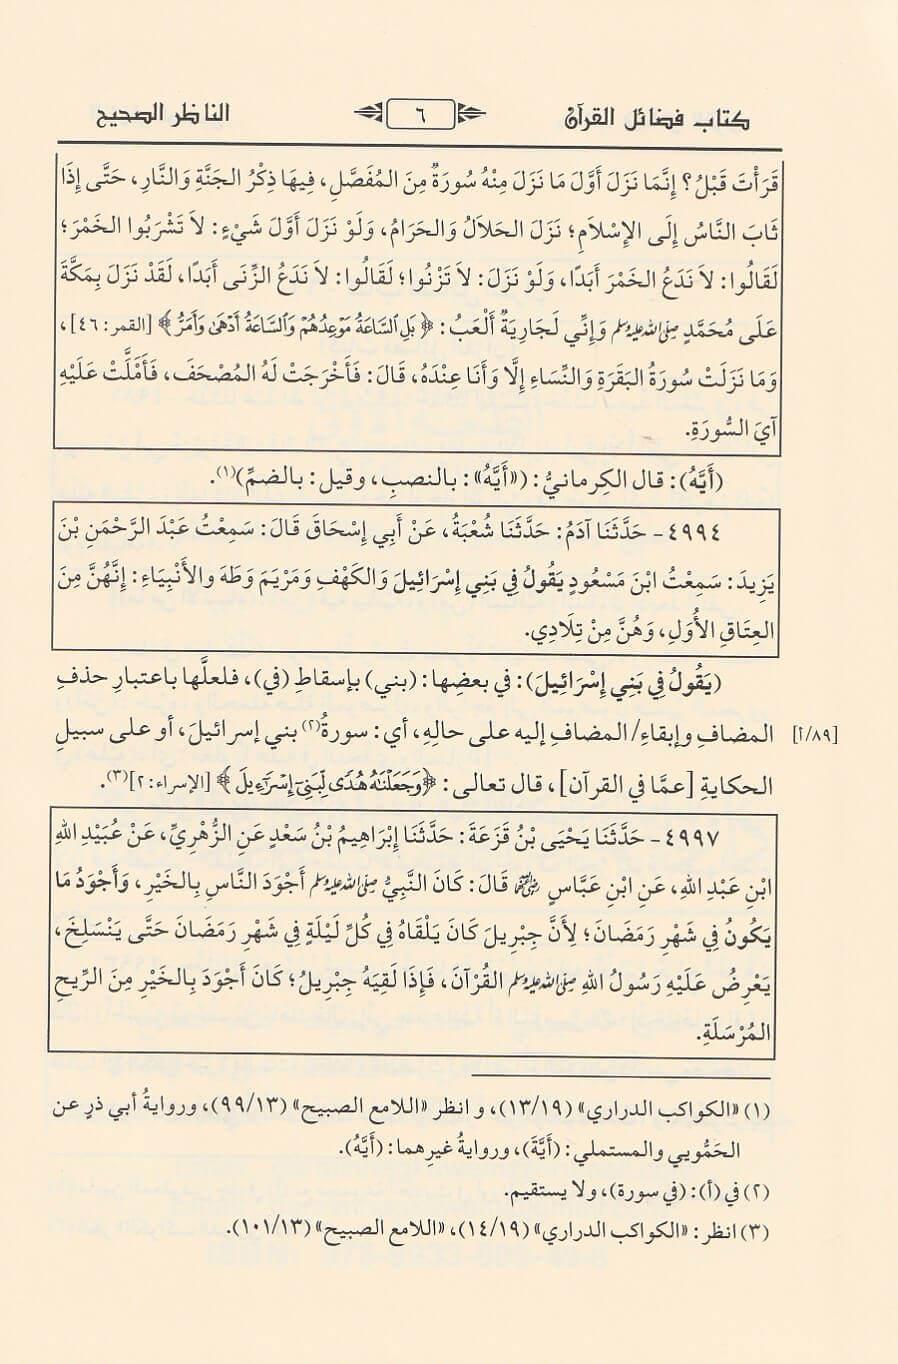 كتاب فضائل القرآن ٦ الناظر الصحيح
قَرَأْتَ قَبْلُ؟ إِنَّمَا نَزَلَ أَوَّلَ مَا نَزَلَ مِنْهُ سُورَةٌ مِنَ المُفَصَّلِ، فِيهَا ذِكْرُ الجَنَّةِ وَالنَّارِ، حَتَّى إِذَا
ثَابَ النَّاسُ إِلَى الإِسْلَامِ؛ نَزَلَ الحَلَالُ وَالحَرَامُ، وَلَوْ نَزَلَ أَوَّلَ شَيْءٍ: لَا تَشْرَبُوا الخَمْرَ؛
لَقَالُوا: لَا نَدَعُ الخَمْرَ أَبَدًا، وَلَوْ نَزَلَ: لَا تَزْنُوا؛ لَقَالُوا: لَا نَدَعُ الزِّنَى أَبَدًا، لَقَدْ نَزَلَ بِمَكَّةَ
عَلَى مُحَمَّدٍ صلى الله عليه وسلم وَإِنِّي لَجَارِيَةٌ أَلْعَبُ: ﴿بَلِ ٱلسَّاعَةُ مَوْعِدُهُمْ وَٱلسَّاعَةُ أَدْهَىٰ وَأَمَرُّ﴾ [القمر: ٤٦]،
وَمَا نَزَلَتْ سُورَةُ البَقَرَةِ وَالنِّسَاءِ إِلَّا وَأَنَا عِنْدَهُ، قَالَ: فَأَخْرَجَتْ لَهُ المُصْحَفَ، فَأَمْلَّتْ عَلَيْهِ
آيَ السُّورَةِ.
(أَيَّهُ): قال الكِرمانيُّ: («أَيَّهُ»: بالنصبِ، وقيل: بالضمِّ)(١).
٤٩٩٤- حَدَّثَنَا آدَمُ: حَدَّثَنَا شُعْبَةُ، عَنْ أَبِي إِسْحَاقَ قَالَ: سَمِعْتُ عَبْدَ الرَّحْمَنِ بْنَ
يَزِيدَ: سَمِعْتُ ابْنَ مَسْعُودٍ يَقُولُ فِي بَنِي إِسْرَائِيلَ وَالكَهْفِ وَمَرْيَمَ وَطَهَ والأَنْبِيَاءِ: إِنَّهُنَّ مِنَ
العِتَاقِ الأُوَلِ، وَهُنَّ مِنْ تِلَادِي.
(يَقُولُ فِي بَنِي إِسْرَائِيلَ): في بعضِها: (بني) بإسقاطِ (في)، فلعلَّها باعتبارِ حذفِ
المضافِ وإبقاءِ/ المضافِ إليه على حالِهِ، أي: سورةُ(٢) بني إسرائيلَ، أو على سبيلِ [٨٩/أ]
الحكايةِ [عمَّا في القرآن]، قال تعالى: ﴿وَجَعَلْنَٰهُ هُدًى لِبَنِىٓ إِسْرَٰٓءِيلَ﴾ [الإسراء: ٢](٣).
٤٩٩٧- حَدَّثَنَا يَحْيَى بْنُ قَزَعَةَ: حَدَّثَنَا إِبْرَاهِيمُ بْنُ سَعْدٍ عَنِ الزُّهْرِيِّ، عَنْ عُبَيْدِ اللهِ
ابْنِ عَبْدِ اللهِ، عَنِ ابْنِ عَبَّاسٍ رضي الله عنهما قَالَ: كَانَ النَّبِيُّ صلى الله عليه وسلم أَجْوَدَ النَّاسِ بِالخَيْرِ، وَأَجْوَدُ مَا
يَكُونُ فِي شَهْرِ رَمَضَانَ؛ لِأَنَّ جِبْرِيلَ كَانَ يَلْقَاهُ فِي كُلِّ لَيْلَةٍ فِي شَهْرِ رَمَضَانَ حَتَّى يَنْسَلِخَ،
يَعْرِضُ عَلَيْهِ رَسُولُ اللهِ صلى الله عليه وسلم القُرْآنَ، فَإِذَا لَقِيَهُ جِبْرِيلُ؛ كَانَ أَجْوَدَ بِالخَيْرِ مِنَ الرِّيحِ
المُرْسَلَةِ.
(١) «الكواكب الدراري» (١٣/١٩)، و انظر «اللامع الصبيح» (٩٩/١٣)، وروايةُ أبي ذرٍ عن
الحَمُّويي والمستملي: (أَيَّةَ)، وروايةُ غيرِهما: (أَيَّهُ).
(٢) في (أ): (في سورة)، ولا يستقيم.
(٣) انظر: «الكواكب الدراري» (١٤/١٩)، «اللامع الصبيح» (١٠١/١٣).